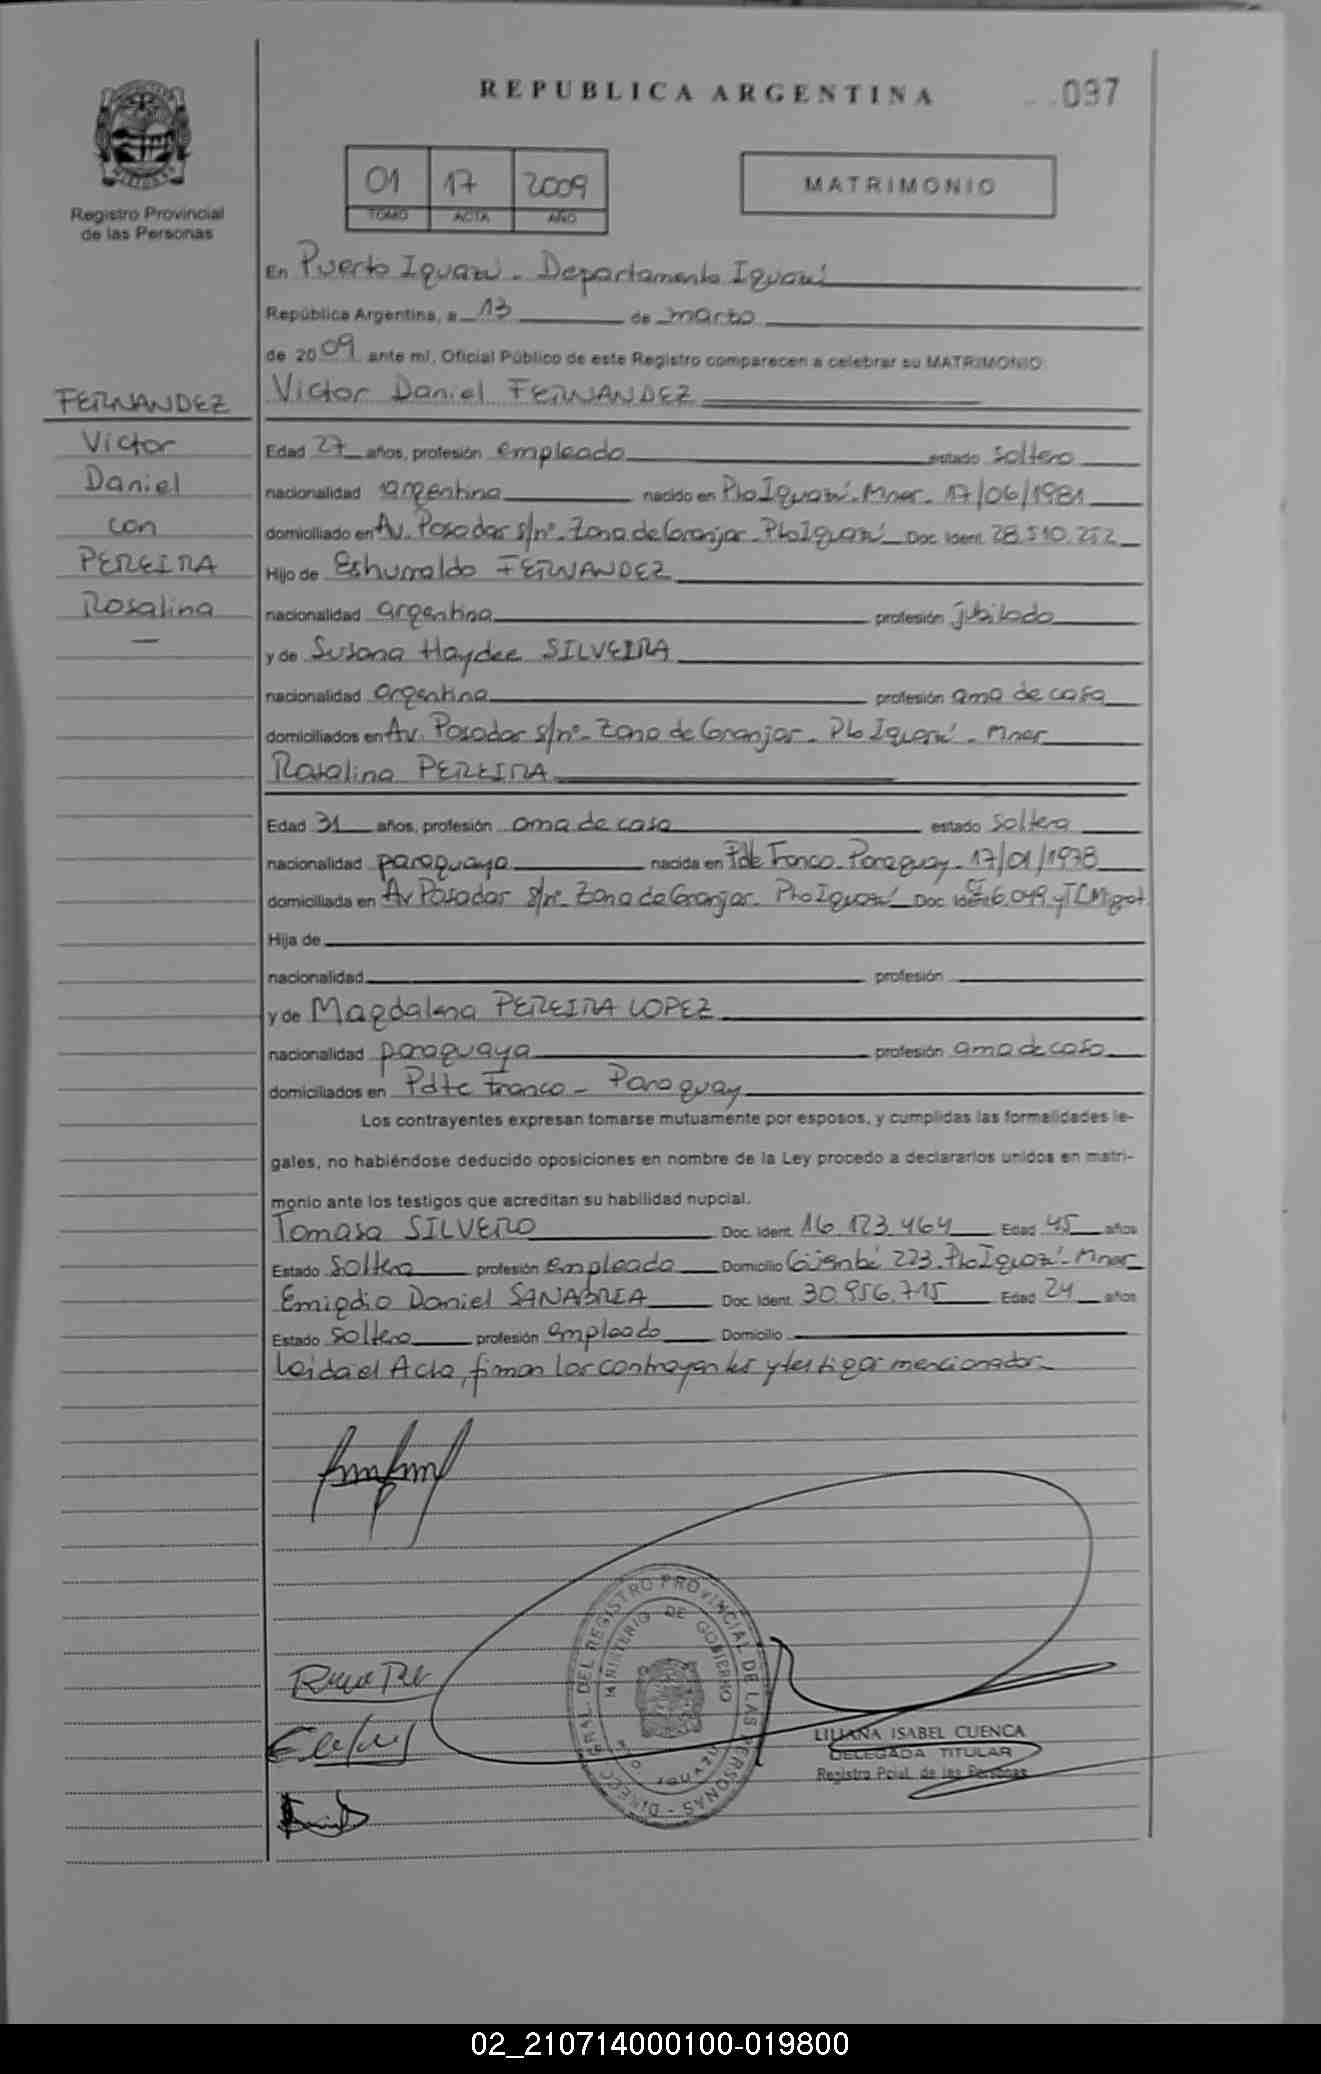 REPUBLICA ARGENTINA
097
Registro Provincial
de las Personas
01 17 2009
TOMO ACTA AÑO
MATRIMONIO
En Puerto Iguazú - Departamento Iguazú
República Argentina, a 13 de marzo
de 2009 ante mí, Oficial Público de este Registro comparecen a celebrar su MATRIMONIO:
Victor Daniel FERNANDEZ
FERNANDEZ
Victor
Daniel
con
PEREIRA
Rosalina
Edad 27 años, profesión empleado estado soltero
nacionalidad argentina nacido en Pto Iguazú - Mnes - 17/06/1981
domiciliado en Av. Posadas s/nº - Zona de Granjas - Pto Iguazú Doc. Ident. 28.510.252
Hijo de FERNANDEZ
nacionalidad argentina profesión jubilado
y de Susana Haydee SILVEIRA
nacionalidad argentina profesión ama de casa
domiciliados en Av. Posadas s/nº - Zona de Granjas - Pto Iguazú - Mnes
Rosalina PEREIRA
Edad 31 años, profesión ama de casa estado soltera
nacionalidad paraguaya nacida en Pdte Franco - Paraguay - 17/01/1978
domiciliada en Av Posadas s/nº - Zona de Granjas - Pto Iguazú Doc. Ident.
Hija de
nacionalidad profesión
y de Magdalena PEREIRA LOPEZ
nacionalidad paraguaya profesión ama de casa
domiciliados en Pdte Franco - Paraguay
Los contrayentes expresan tomarse mutuamente por esposos, y cumplidas las formalidades le-
gales, no habiéndose deducido oposiciones en nombre de la Ley procedo a declararlos unidos en matri-
monio ante los testigos que acreditan su habilidad nupcial.
Tomasa SILVERO Doc. Ident. 16.123.464 Edad 45 años
Estado soltera profesión empleada Domicilio Güembé 223 - Pto Iguazú - Mnes
Emigdio Daniel SANABRIA Doc. Ident. 30.956.715 Edad 24 años
Estado soltero profesión empleado Domicilio
Leida el Acta, firman los contrayentes y testigos mencionados -
DIRECC. GRAL. DEL REGISTRO PROVINCIAL DE LAS PERSONAS
MINISTERIO DE GOBIERNO
IGUAZU
LILIANA ISABEL CUENCA
DELEGADA TITULAR
Registro Pcial. de las Personas
02_210714000100-019800